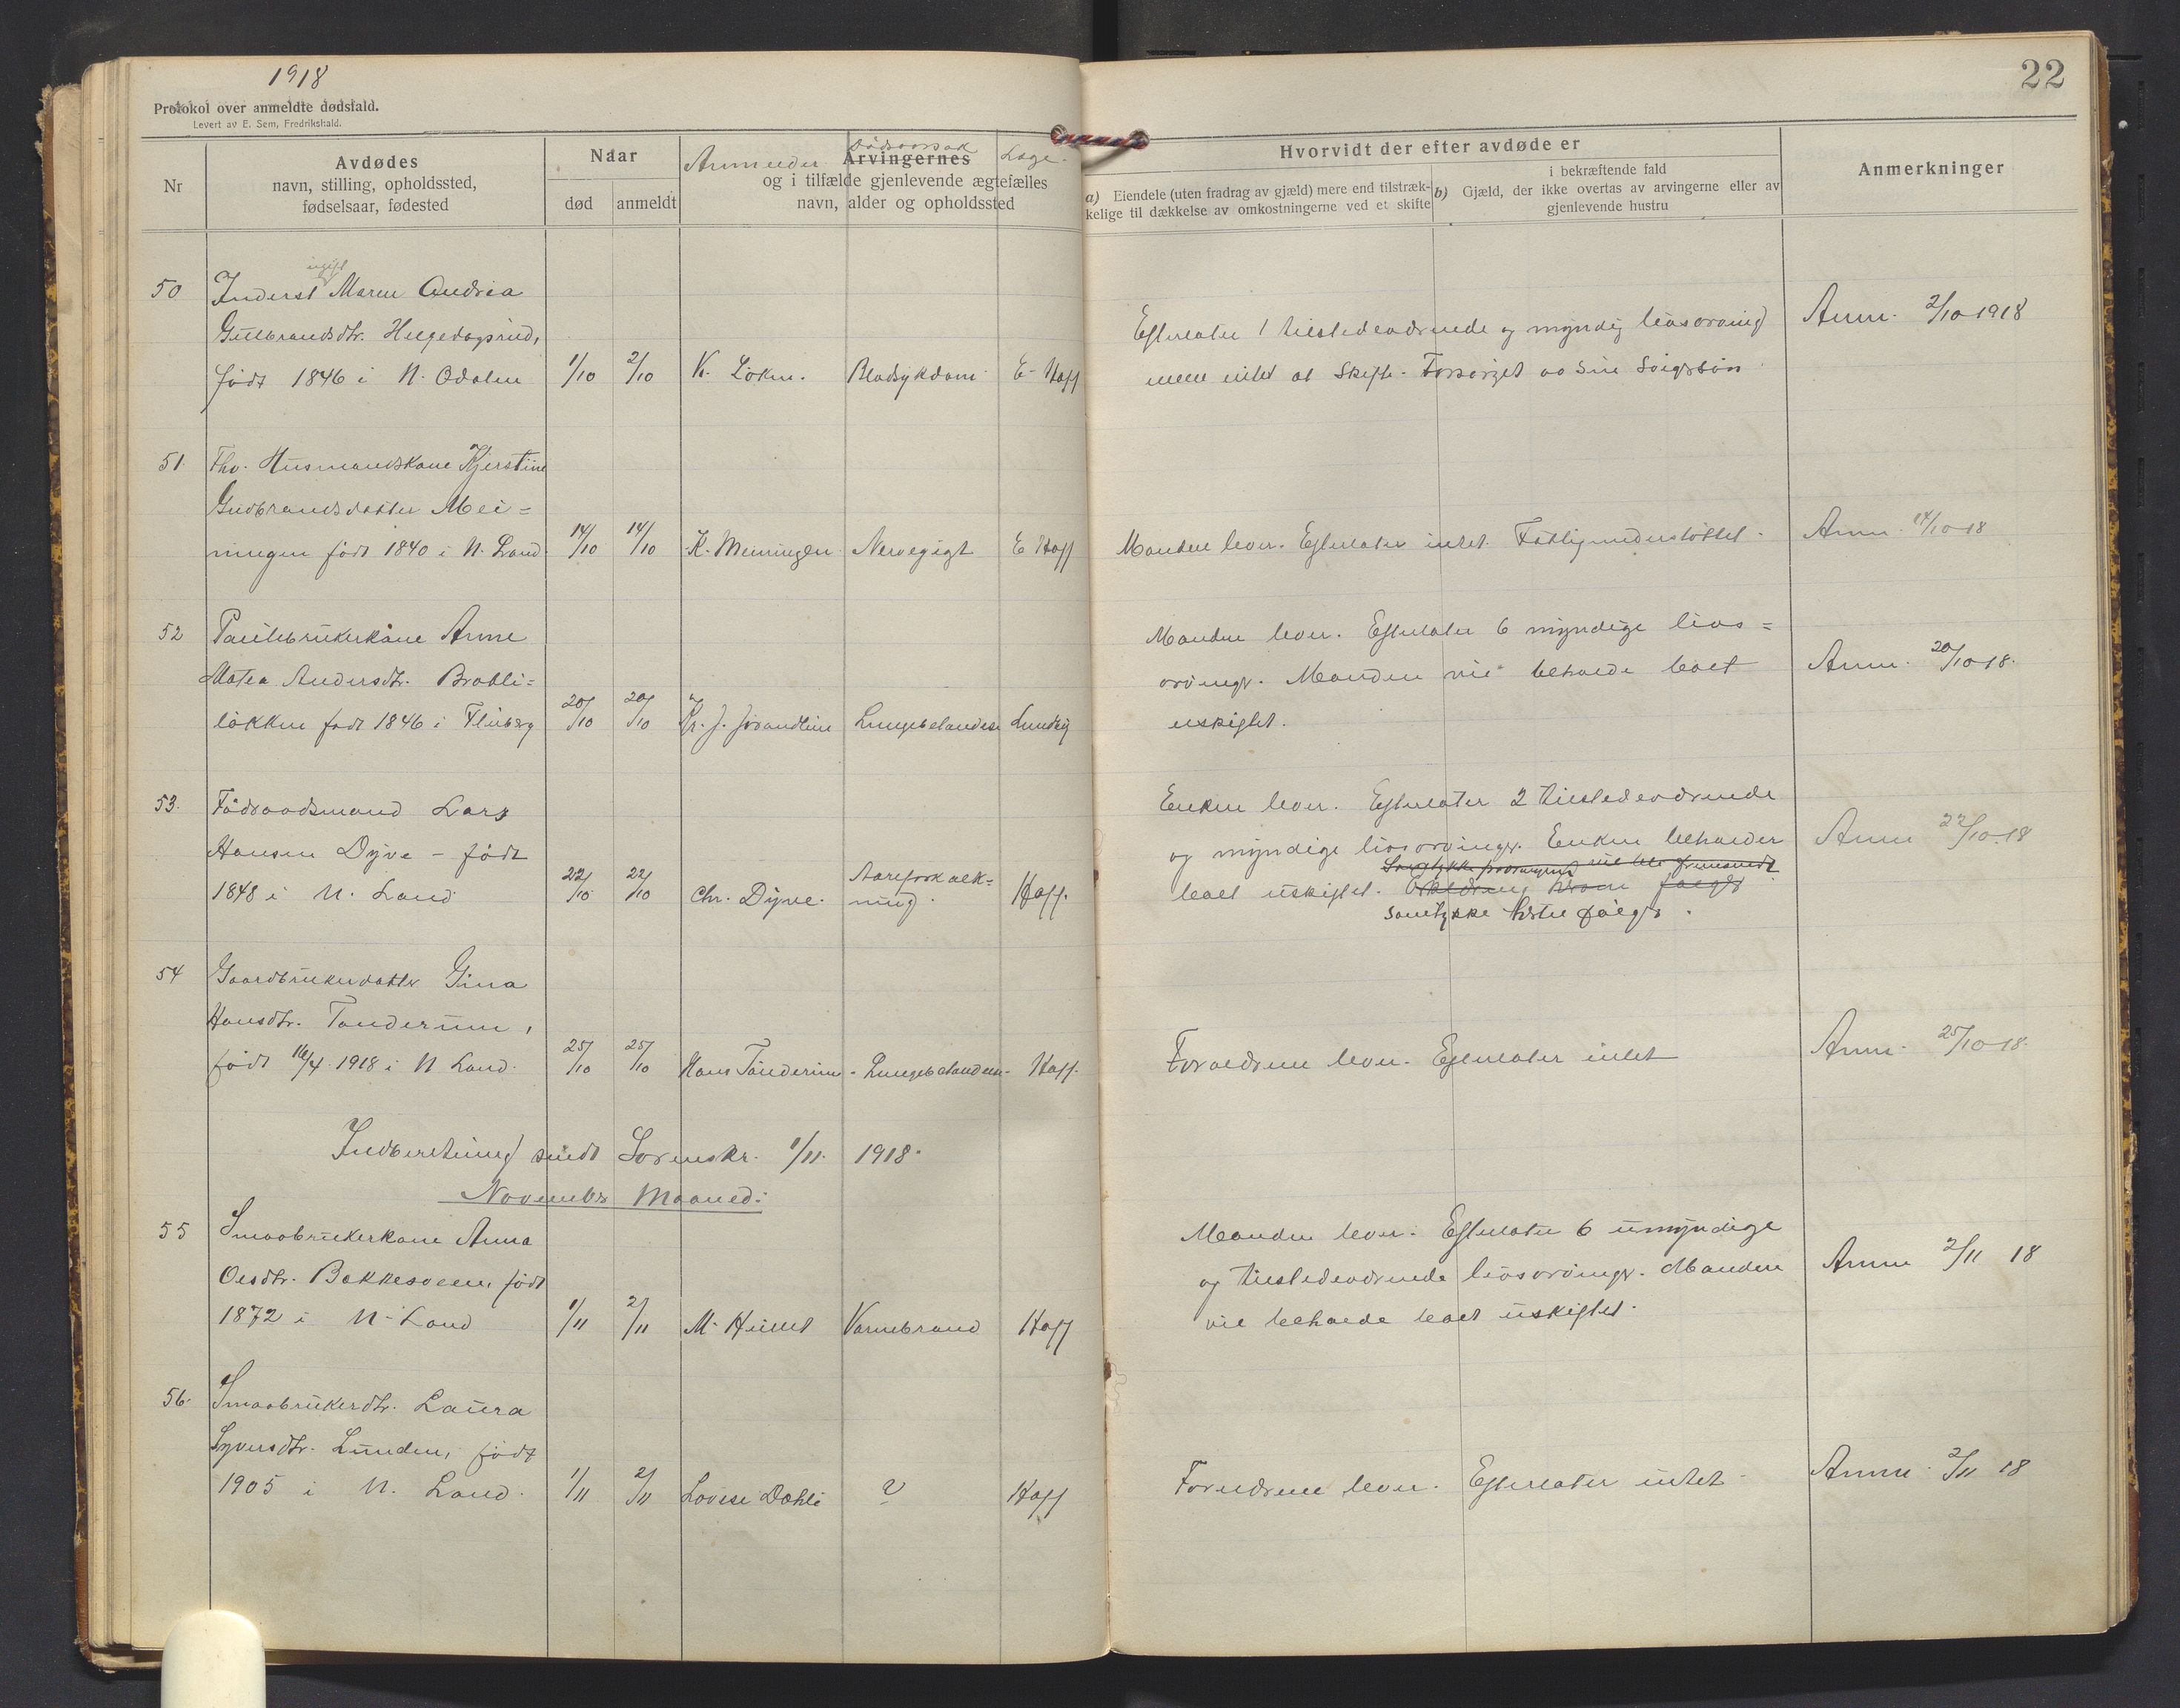 1918
22
Protokol over anmeldte dødsfald.
Levert av E. Sem, Fredrikshald.
Nr
Avdødes
navn, stilling, opholdssted,
fødselsaar, fødested
Naar
død
anmeldt
Anmelder
Dødsaarsak
Læge.
Arvingernes
og i tilfælde gjenlevende ægtefælles
navn, alder og opholdssted
Hvorvidt der efter avdøde er
a) Eiendele (uten fradrag av gjæld) mere end tilstræk-
kelige til dækkelse av omkostningerne ved et skifte
i bekræftende fald
b) Gjæld, der ikke overtas av arvingerne eller av
gjenlevende hustru
Anmerkninger
ugift
50 Inderst Maren Andrea
Gulbrandsdtr. Helgedagsrud,
født 1846 i N. Odalen 1/10 2/10 K. Løken. Blodsykdom E. Hoff
Efterlater 1 tilstedeværende og myndig livsarving
men intet at skifte. Forsørget av sin svigersøn
Anm. 2/10 1918
51. Fhv. Husmandskone Kjerstine
Gudbrandsdatter Mei=
ningen født 1840 i N. Land. 14/10 14/10 K. Meiningen Nervegigt E Hoff
Manden lever. Efterlater intet. Fattigunderstøttet.
Anm. 14/10 18
52 Partebrukerkone Anne
Matea Andersdr. Brohli=
løkken født 1846 i Fluberg 20/10 20/10 Kr. J. Jøranlien Lungebetændelse Lundby
Manden lever. Efterlater 6 myndige livs=
arvinger. Manden vil beholde boet
uskiftet.
Anm. 20/10 18.
53. Føderaadsmand Lars
Hansen Dyve - født
1848 i N. Land 22/10 22/10 Chr. Dyve. Aareforkalk=
ning. Hoff.
Enken lever. Efterlater 2 tilstedeværende
og myndige livsarvinger. Enken beholder
boet uskiftet.
samtykke hertil følger.
Anm 22/10 18
54 Gaardbrukerdatter Gina
Hansdtr. Tonderum,
født 16/4 1918 i N. Land. 25/10 25/10 Hans Tønderum. Lungebetændelse. Hoff.
Forældrene lever. Efterlater intet
Anm. 25/10 18.
Indberetning sendt Sorenskr. 1/11. 1918.
November Maaned:
55 Smaabrukerkone Anna
Olsdtr. Bakkesveen, født
1872 i N. Land 1/11 2/11 M. Hullet Varmebrand Hoff
Manden lever. Efterlater 6 umyndige
og tilstedeværende livsarvinger. Manden
vil beholde boet uskiftet.
Anm 2/11 18
56. Smaabrukerdtr. Laura
Syversdtr. Lunden, født
1905 i N. Land. 1/11 2/11 Lovise Dæhli ? Hoff
Forældrene lever. Efterlater intet.
Anm. 2/11 18